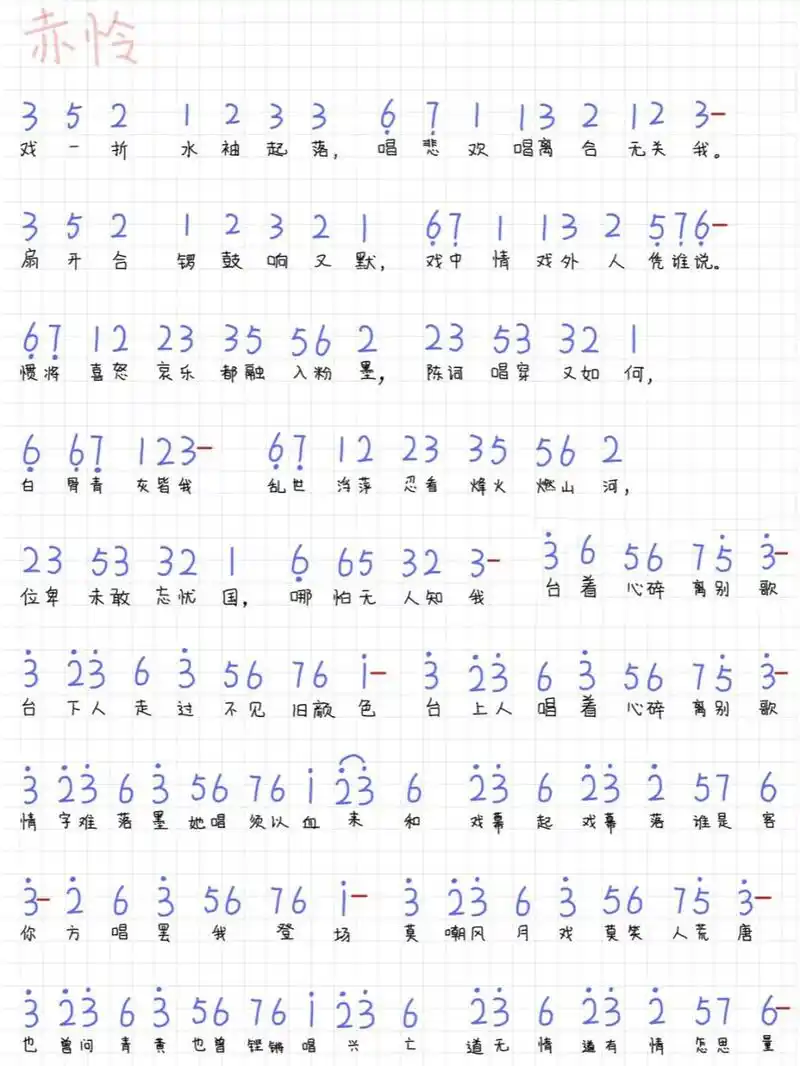 赤怜
3 5 2 1 2 3 3 6̣ 7̣ 1 13 2 12 3-
戏一折 水袖起落，唱悲欢唱离合无关我。
3 5 2 1 2 3 2 1 6̣7̣ 1 13 2 5̣7̣6̣-
扇开合 锣鼓响又默，戏中情戏外人凭谁说。
6̣7̣ 12 23 35 56 2 23 53 32 1
惯将喜怒哀乐都融入粉墨，陈词唱穿又如何，
6̣ 6̣7̣ 123- 6̣7̣ 12 23 35 56 2
白骨青灰皆我 乱世浮萍忍看烽火燃山河，
23 53 32 1 6̣ 65 32 3- 3̇ 6 56 75̇ 3̇-
位卑未敢忘忧国，哪怕无人知我 台着心碎离别歌
3̇ 2̇3̇ 6 3̇ 56 76 1̇- 3̇ 2̇3̇ 6 3̇ 56 75̇ 3̇-
台下人走过不见旧颜色 台上人唱着心碎离别歌
3̇ 2̇3̇ 6 3̇ 56 76 1̇ 2̇3̇ 6 2̇3̇ 6 2̇3̇ 2̇ 57 6
情字难落墨她唱须以血来和 戏幕起戏幕落谁是客
3̇- 2̇ 6 3̇ 56 76 1̇- 3̇ 2̇3̇ 6 3̇ 56 75̇ 3̇-
你方唱罢我登场 莫嘲风月戏莫笑人荒唐
3̇ 2̇3̇ 6 3̇ 56 76 1̇ 2̇3̇ 6 2̇3̇ 6 2̇3̇ 2̇ 57 6-
也曾问青黄也曾铿锵唱兴亡 道无情道有情怎思量